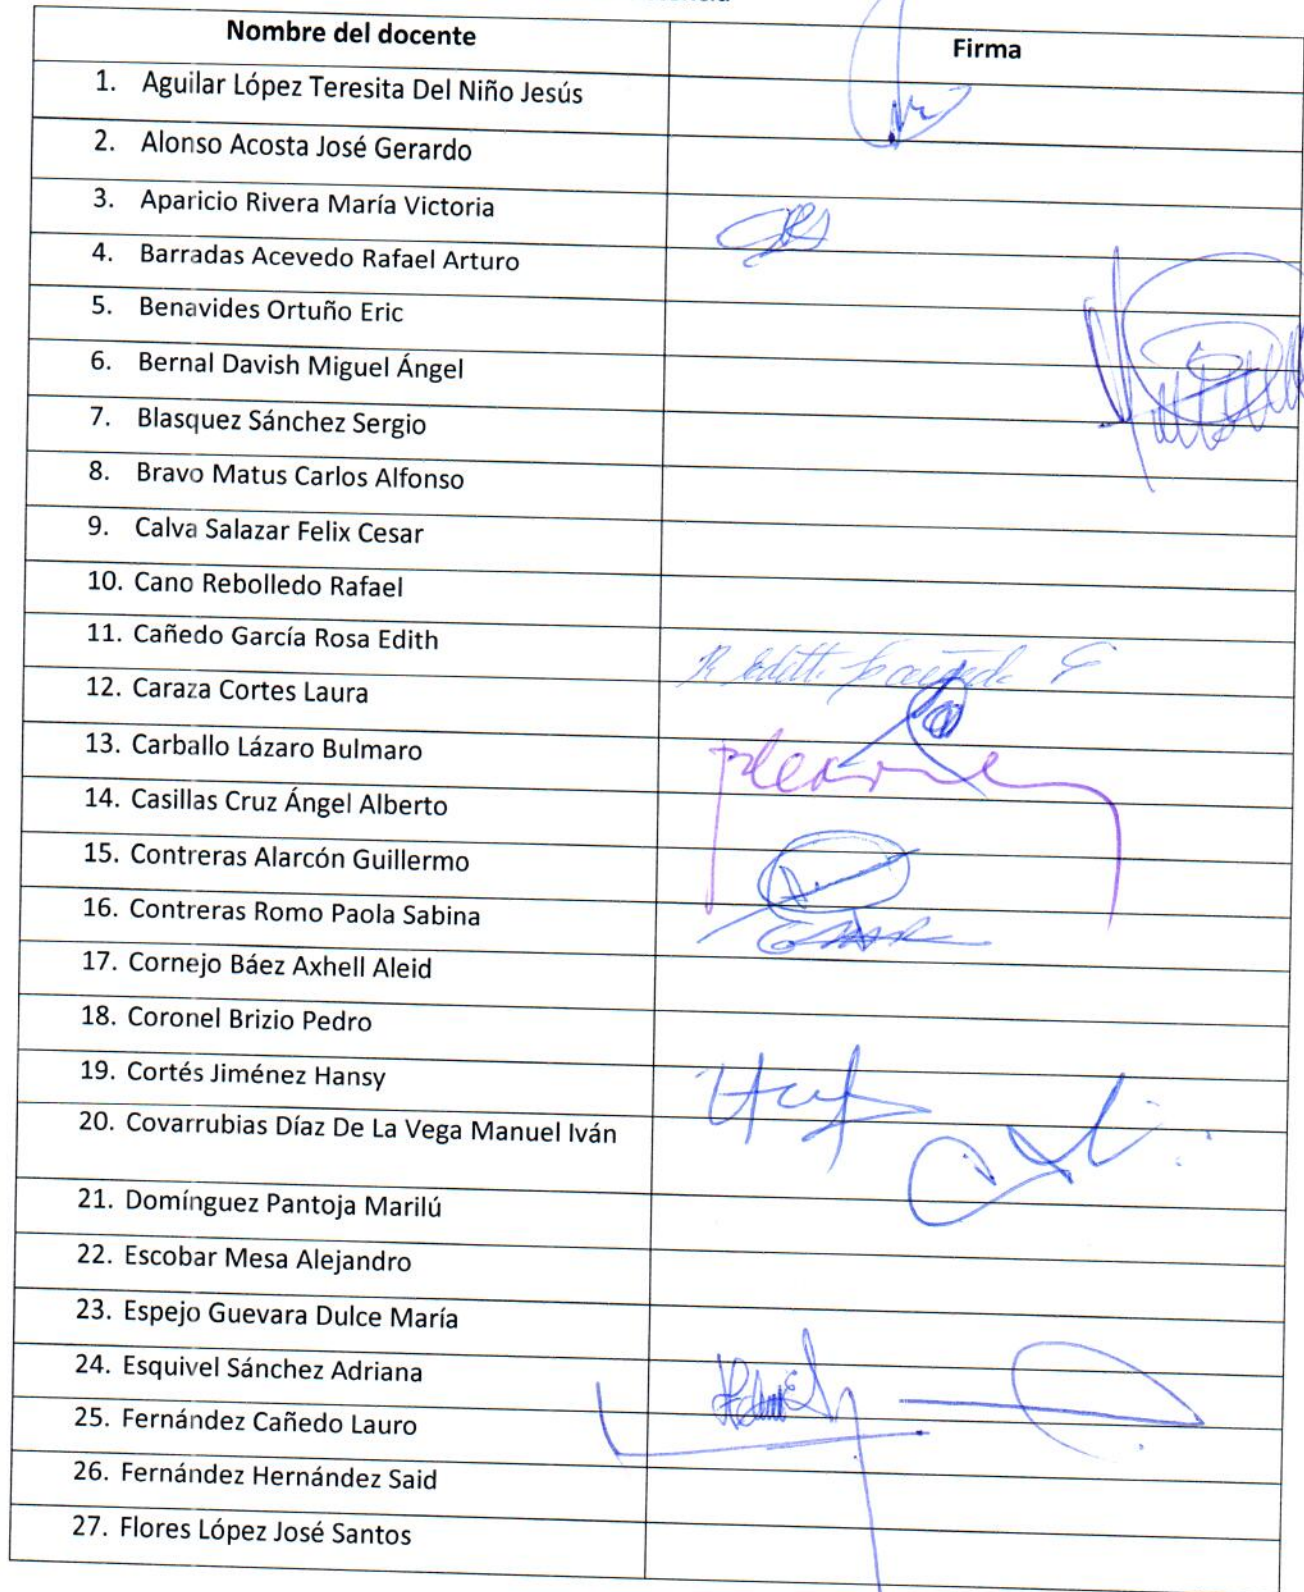 Nombre del docente Firma
1. Aguilar López Teresita Del Niño Jesús
2. Alonso Acosta José Gerardo
3. Aparicio Rivera María Victoria
4. Barradas Acevedo Rafael Arturo
5. Benavides Ortuño Eric
6. Bernal Davish Miguel Ángel
7. Blasquez Sánchez Sergio
8. Bravo Matus Carlos Alfonso
9. Calva Salazar Felix Cesar
10. Cano Rebolledo Rafael
11. Cañedo García Rosa Edith
R Edith Cañedo G
12. Caraza Cortes Laura
13. Carballo Lázaro Bulmaro
14. Casillas Cruz Ángel Alberto
15. Contreras Alarcón Guillermo
16. Contreras Romo Paola Sabina
17. Cornejo Báez Axhell Aleid
18. Coronel Brizio Pedro
19. Cortés Jiménez Hansy
20. Covarrubias Díaz De La Vega Manuel Iván
21. Domínguez Pantoja Marilú
22. Escobar Mesa Alejandro
23. Espejo Guevara Dulce María
24. Esquivel Sánchez Adriana
25. Fernández Cañedo Lauro
26. Fernández Hernández Said
27. Flores López José Santos